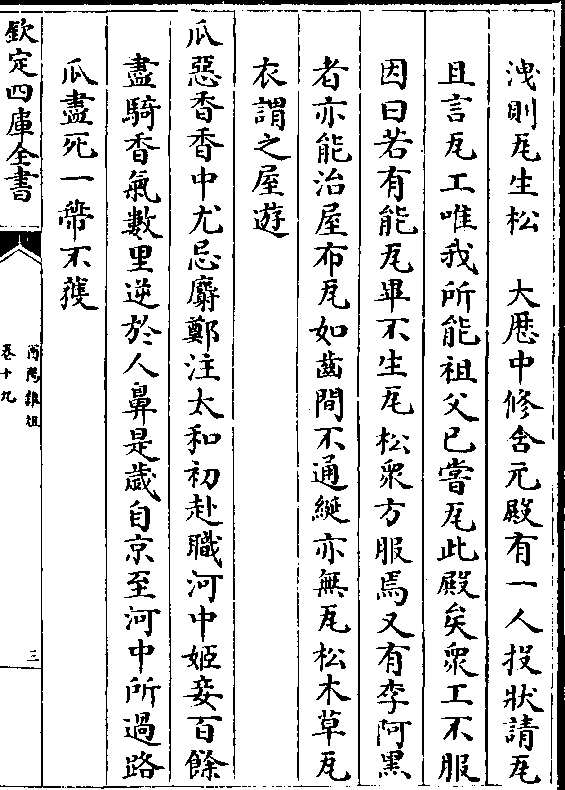 洩則瓦生松　大厯中修含元殿有一人投狀請瓦
且言瓦工唯我所能祖父已嘗瓦此殿矣衆工不服
因曰若有能瓦畢不生瓦松衆方服焉又有李阿黑
者亦能治屋布瓦如齒間不通綖亦無瓦松木草瓦
衣謂之屋遊
瓜惡香香中尤忌麝鄭注太和初赴職河中姬妾百餘
盡騎香氣數里逆於人鼻是歲自京至河中所過路
瓜盡死一蔕不獲
欽定四庫全書
酉陽雜俎
卷十九
三